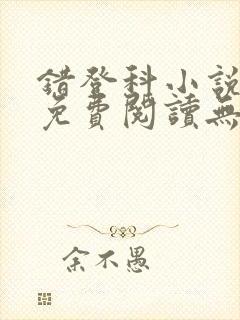 錯登科小說
免費閱讀無
余不愚